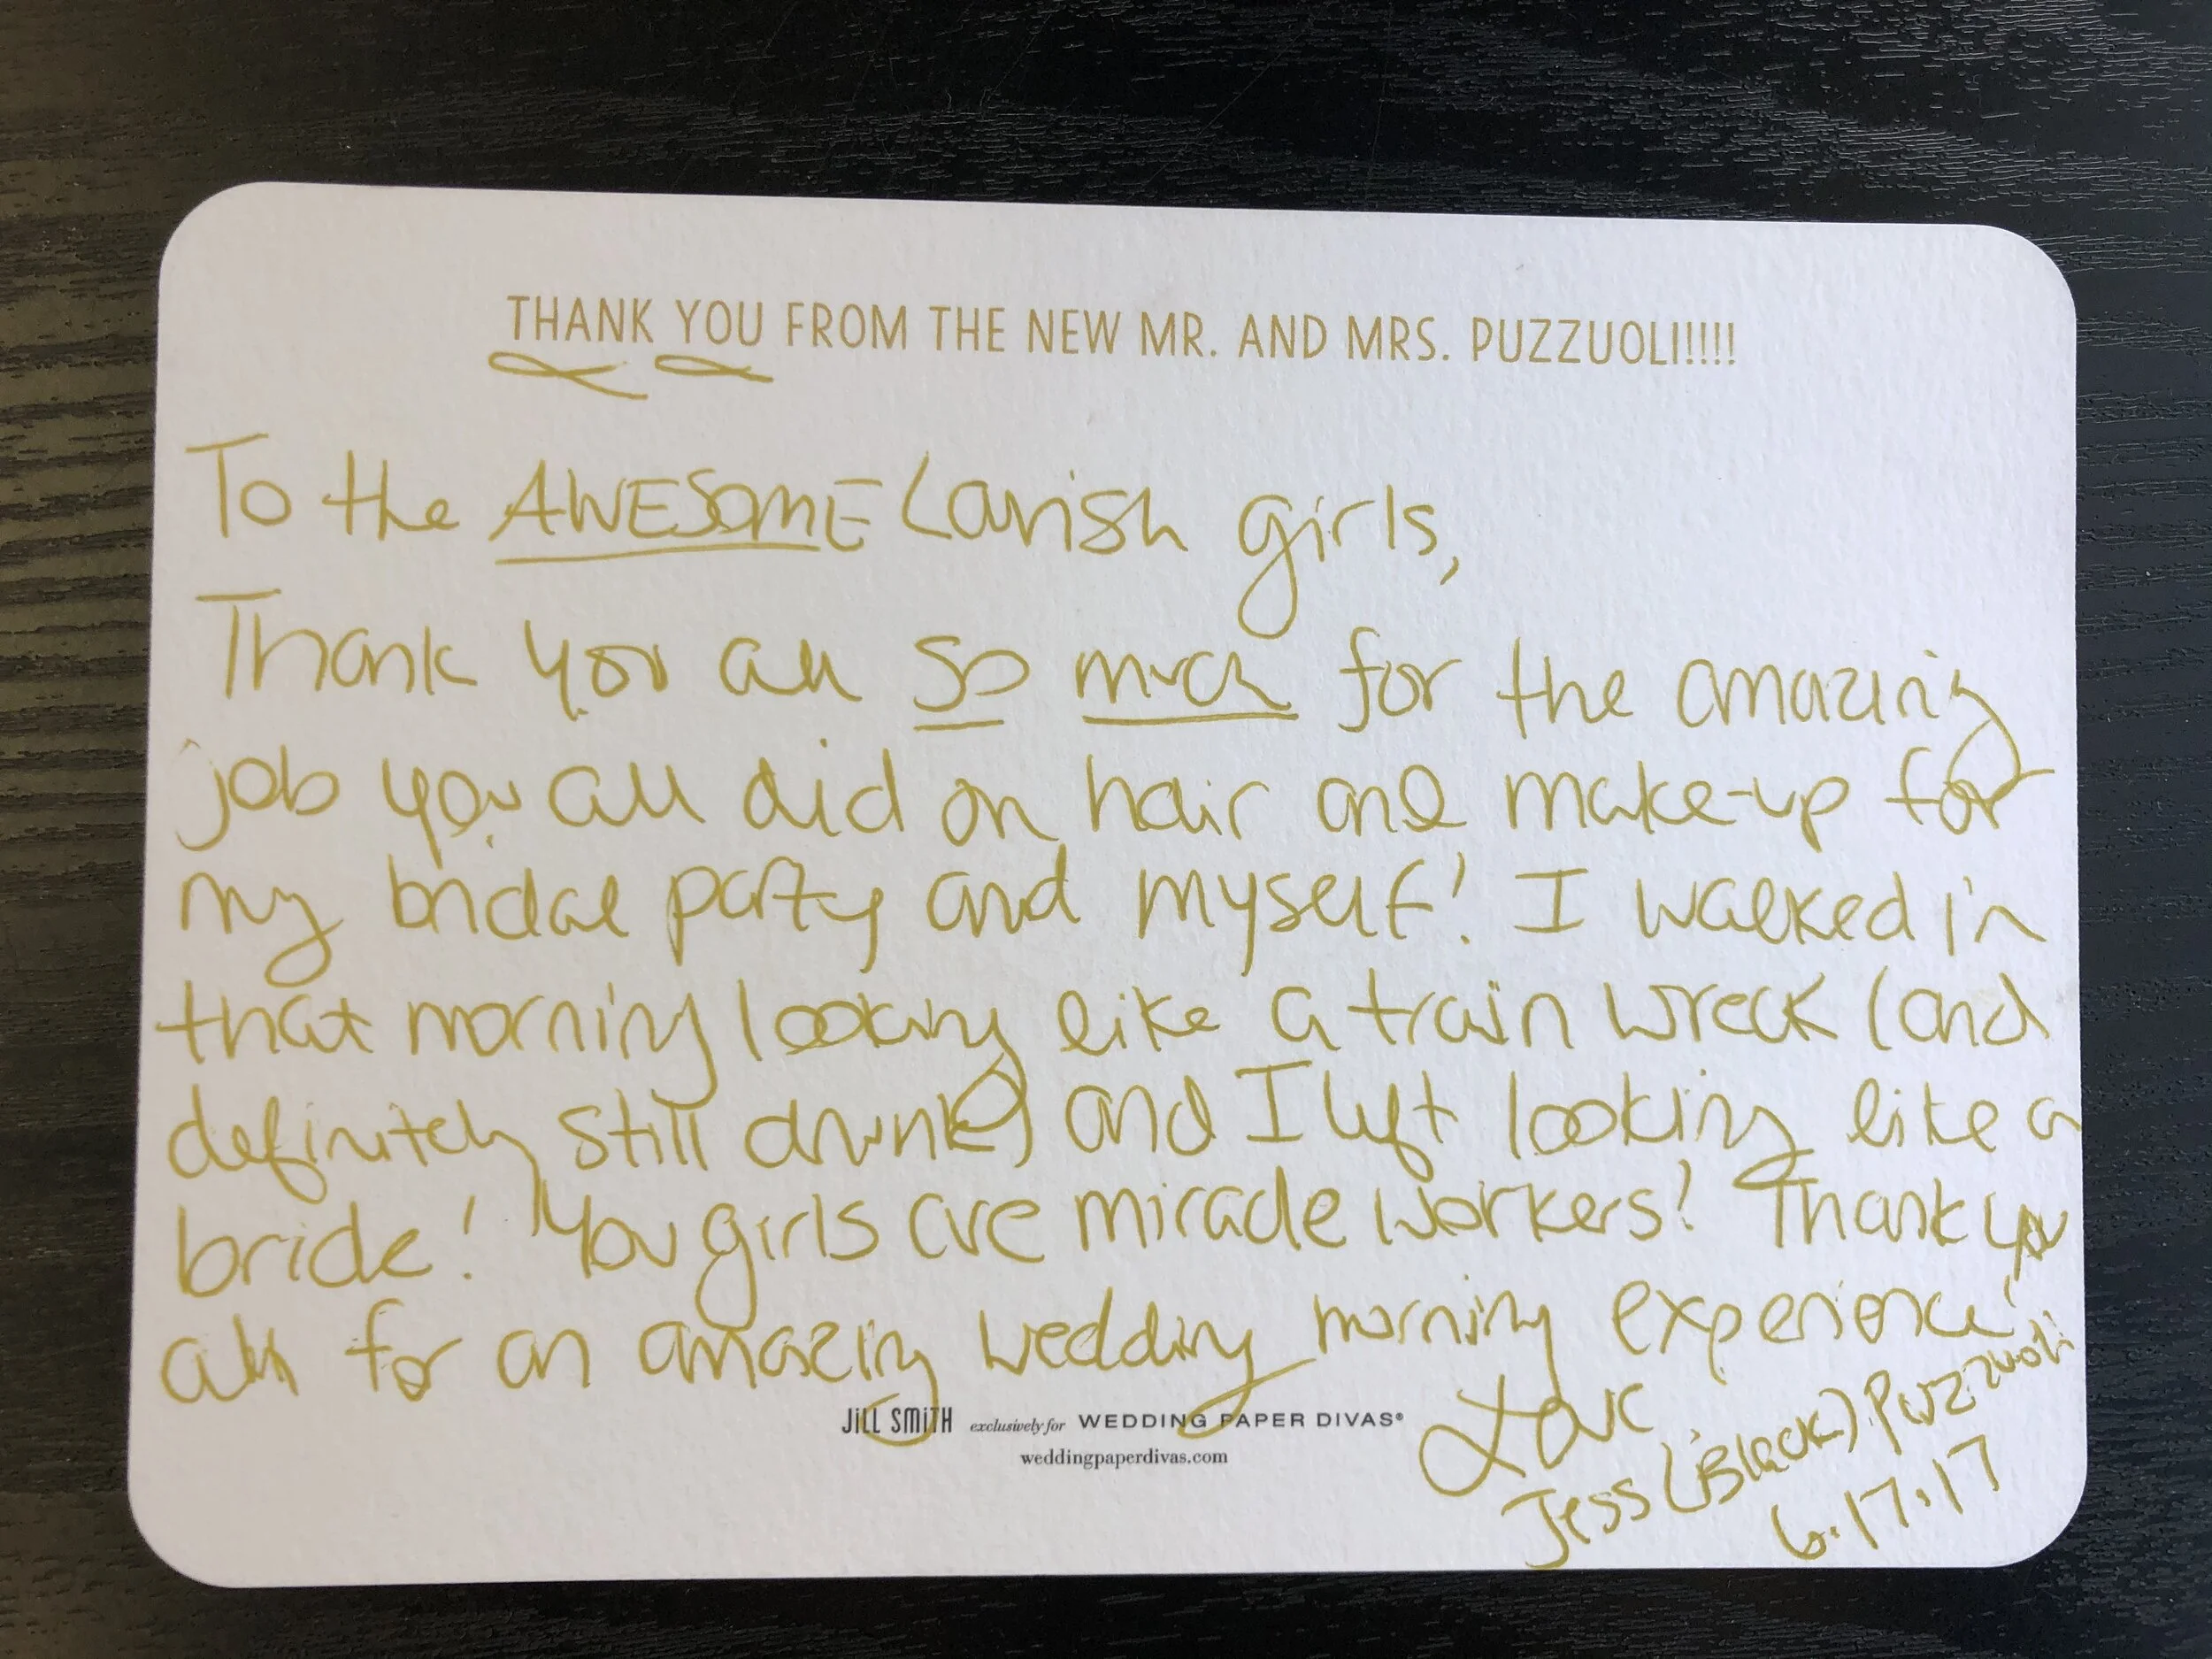 THANK YOU FROM THE NEW MR. AND MRS. PUZZUOLI!!!!
To the AWESOME Lavish girls,
Thank you all so much for the amazing
job you all did on hair and make-up for
my bridal party and myself! I walked in
that morning looking like a train wreck (and
definitely still drunk) and I left looking like a
bride! You girls are miracle workers! Thank you
all for an amazing wedding morning experience!
Love
Jess (Black) Puzzuoli
6.17.17
JILL SMITH exclusively for WEDDING PAPER DIVAS®
weddingpaperdivas.com